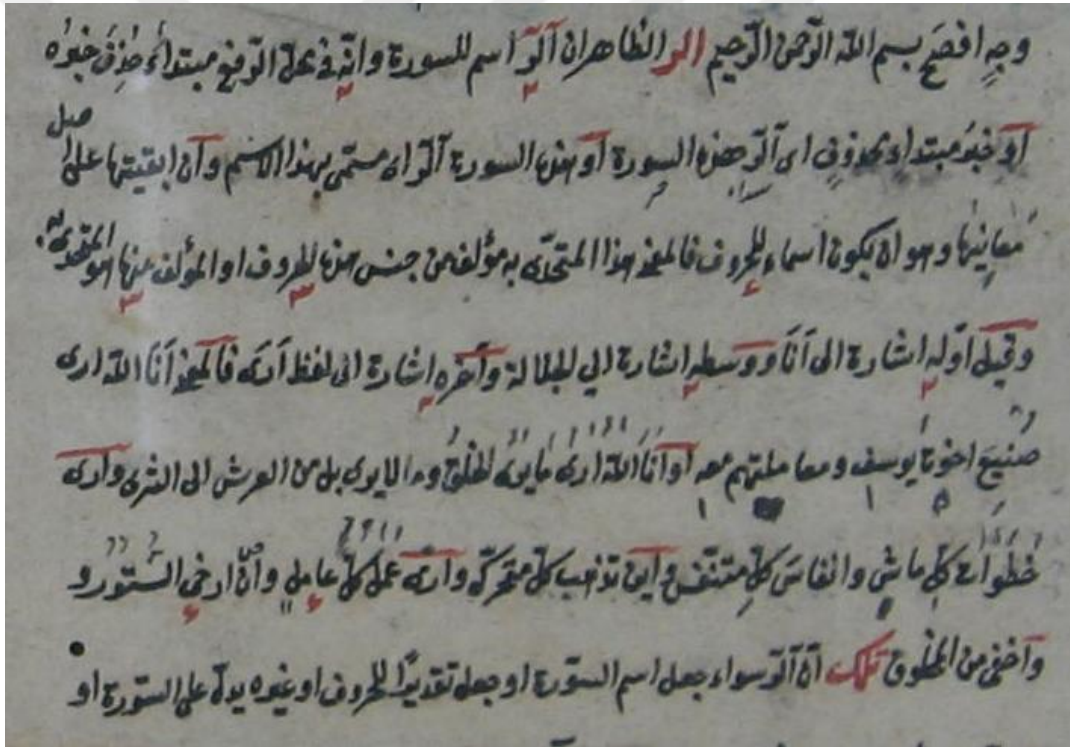 وجه افصح بسم الله الرّحمن الرّحيم الر الظاهر ان آلر اسم للسورة وانّه في محلّ الرّفع مبتداء حذف خبره
او خبر مبتداء محذوف اى آلر هذه السورة او هذه السورة آلر اى مسمّى بهذا الاسم وان ابقيتها على اصل
معانيها وهو ان يكون اسماء للحروف فالمعنى هذا المتحدّى به مؤلف من جنس هذه الحروف او المؤلف منها هو المتحدى به
وقيل اوّله اشارة الى اَنَا ووسطه اشارة الي الجلالة وآخره اشارة الى لفظ اَرَى فالمعنى اَنَا الله ارى
صنيع اخوة يوسف ومعاملتهم معه او اَنَا الله ارى ما يرى الخلق وما لا يرى بل من العرش الى الثرى وارى
خطوات كلّ ماشٍ وانفاس كلّ متنفّس واين تذهب كلّ متحركة وارى عمل كلّ عامل وان ارخي الستور و
واخفى من المخلوق تلك انّ آلر سواء جعل اسم السّورة او جعل تقديرًا للحروف او غيره يدلّ على السّورة او